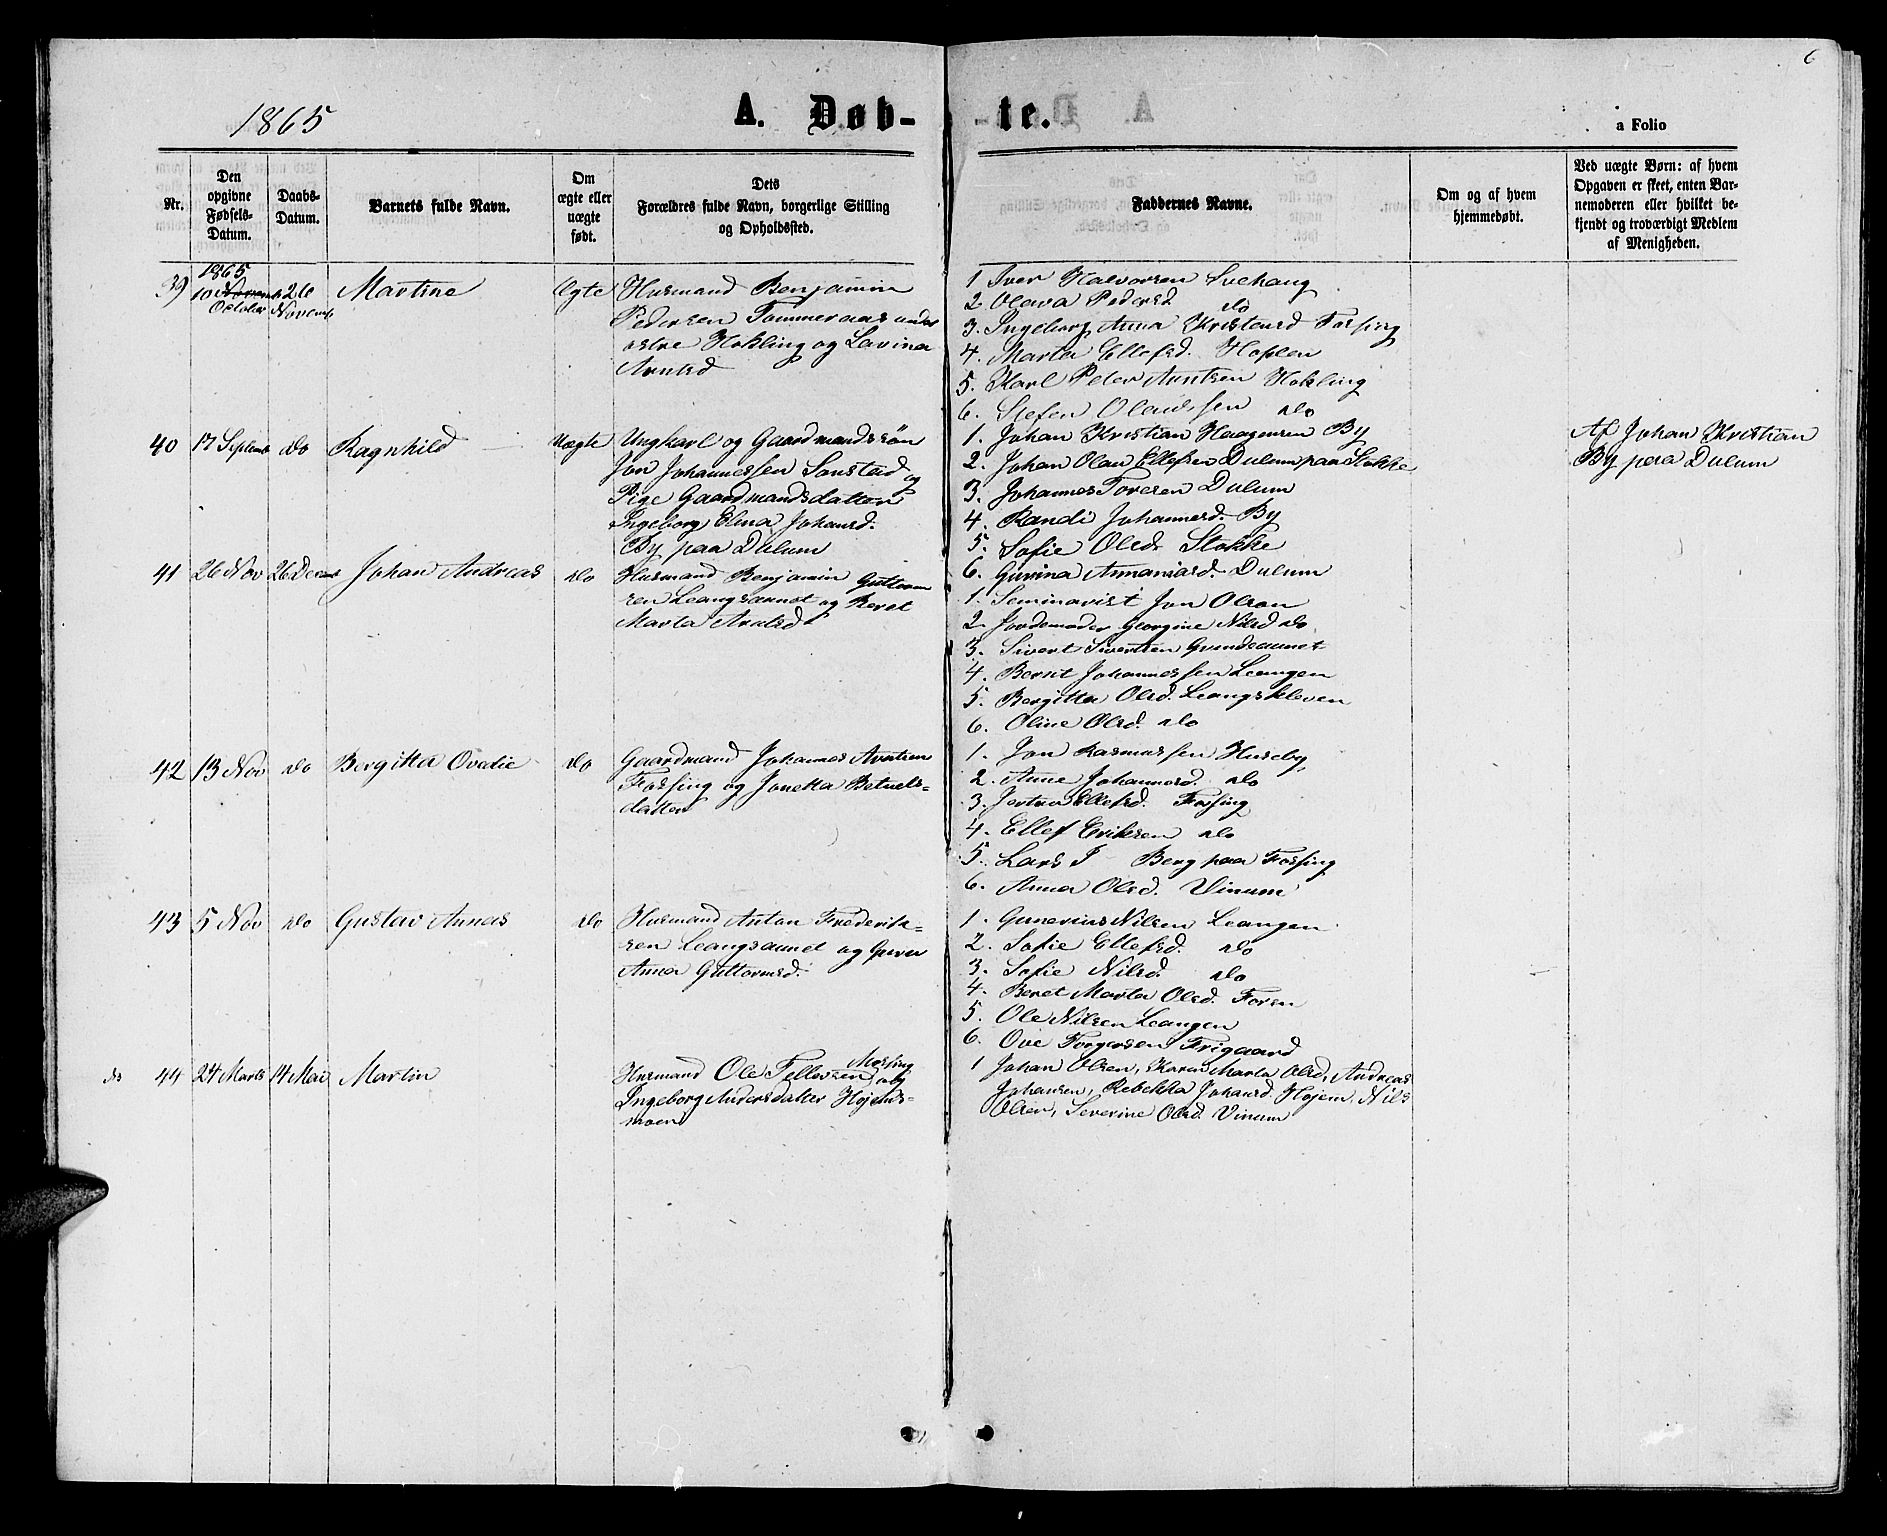 6
1865
A. Døb-
te.
a Folio
Nr.
Den opgivne Fødsels-Datum.
Daabs-Datum.
Barnets fulde Navn.
Om ægte eller uægte født.
Dets Forældres fulde Navn, borgerlige Stilling og Opholdssted.
Faddernes Navne.
Om og af hvem hjemmedøbt.
Ved uægte Børn: af hvem Opgaven er skeet, enten Barnemoderen eller hvilket bekjendt og troværdigt Medlem af Menigheden.
1865
39 10 Novemb 26 Martine Ægte Husmand Benjamin
October Novemb
Pedersen Tømmeraas under
østre Hokling og Lavina
Arntsd
1 Iver Halvorsen Svehaug
2. Olava Pedersd do
3. Ingeborg Anna Kristensd Fossing
4. Marta Ellefsd. Hoplen
5. Karl Peter Arntsen Hokling
6. Stefen Olaussen do
40 17 Septemb do Ragnhild Uægte Ungkarl og Gaardmandssøn
Jon Johannessen Sonstad og
Pige Gaardmandsdatter
Ingeborg Elina Johansd.
By paa Dulum
1. Johan Kristian Haagensen By
2. Johan Olau Ellefsen Dulum paa Stokke
3. Johannes Toresen Dulum
4. Randi Johannesd. By
5. Sofie Olsd. Stokke
6. Gurina Annaniasd. Dulum
Af Johan Kristian
By paa Dulum
41 26 Nov 26 Decemb Johan Andreas do Husmand Benjamin Guttorm
sen Leangsaunet og Beret
Marta Arntsd
1. Seminarist Jon Olsen
2. Jordemoder Georgine Nilsd do
3. Sivert Sivertsen Grundeaunet
4. Bernt Johannessen Leangen
5. Bergitta Olsd. Leangskleven
6. Oline Olsd. do
42 13 Nov do Bergitta Ovedie do Gaardmand Johannes Arntsen
Fossing og Jonetta Betuels-
datter
1. Jon Rasmussen Huseby
2. Anne Johannesd. do
3. Ellefsd. Fossing
4. Ellef Eriksen do
5. Lars J Berg paa Fossing
6. Anna Olsd. Vinum
43 5 Nov do Gustav Annas do Husmand Anton Frederik-
sen Leangsaunet og
Anna Guttormsd.
1. Nilsen Leangen
2. Sofie Ellefsd. do
3. Sofie Nilsd. do
4. Beret Marta Olsd. Foren
5. Ole Nilsen Leangen
6. Ove Torgersen Frigaard
44 24 Marts 14 Mai Martin Husmand Ole Tellevsen Mossing og
Ingeborg Andersdatter Højems-
moen
1 Johan Olsen, Karen Marta Olsd, Andreas
Johansen, Rebekka Johansd. Højem, Nils
Olsen, Severine Olsd. Vinum